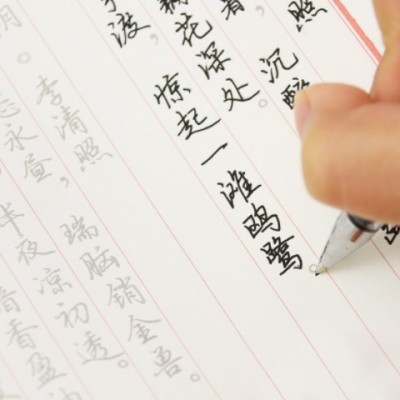 照
沉醉
藕花深处。
渡，惊起一滩鸥鹭
李清照
永昼，瑞脑销金兽。
半夜凉初透。
暗香盈